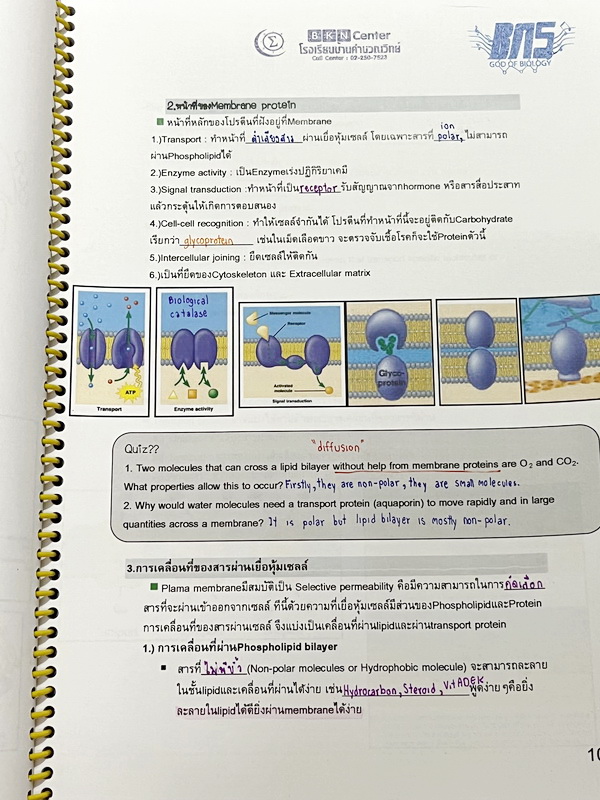 BKN Center
โรงเรียนบ้านคำนวณวิทย์
Call Center : 02-250-7522
BNS
GOD OF BIOLOGY
2.หน้าที่ของMembrane protein
หน้าที่หลักของโปรตีนที่ฝังอยู่ที่Membrane
ion
1.)Transport : ทำหน้าที่ ลำเลียงสาร ผ่านเยื่อหุ้มเซลล์ โดยเฉพาะสารที่ polar, ไม่สามารถ
ผ่านPhospholipidได้
2.)Enzyme activity : เป็นEnzymeเร่งปฏิกิริยาเคมี
3.)Signal transduction :ทำหน้าที่เป็น receptor รับสัญญาณจากhormone หรือสารสื่อประสาท
แล้วกระตุ้นให้เกิดการตอบสนอง
4.)Cell-cell recognition : ทำให้เซลล์จำกันได้ โปรตีนที่ทำหน้าที่นี้จะอยู่ติดกับCarbohydrate
เรียกว่า glycoprotein เช่นในเม็ดเลือดขาว จะตรวจจับเชื้อโรคก็จะใช้Proteinตัวนี้
5.)Intercellular joining : ยึดเซลล์ให้ติดกัน
6.)เป็นที่ยึดของCytoskeleton และ Extracellular matrix
ATP
Transport
Biological
catalase
Enzyme activity
Messenger molecule
Receptor
Activated
molecule
Signal transduction
Glyco-
protein
Quiz??
"diffusion"
1. Two molecules that can cross a lipid bilayer without help from membrane proteins are O2 and CO2.
What properties allow this to occur? Firstly, they are non-polar, they are small molecules.
2. Why would water molecules need a transport protein (aquaporin) to move rapidly and in large
quantities across a membrane? It is polar but lipid bilayer is mostly non-polar.
3.การเคลื่อนที่ของสารผ่านเยื่อหุ้มเซลล์
Plama membraneมีสมบัติเป็น Selective permeability คือมีความสามารถในการ คัดเลือก
สารที่จะผ่านเข้าออกจากเซลล์ ทีนี้ด้วยความที่เยื่อหุ้มเซลล์มีส่วนของPhospholipidและProtein
การเคลื่อนที่ของสารผ่านเซลล์ จึงแบ่งเป็นเคลื่อนที่ผ่านlipidและผ่านtransport protein
1.) การเคลื่อนที่ผ่านPhospholipid bilayer
สารที่ ไม่มีขั้ว (Non-polar molecules or Hydrophobic molecule) จะสามารถละลาย
ในชั้นlipidและเคลื่อนที่ผ่านได้ง่าย เช่น Hydrocarbon, Steroid, Vit ADEK พูดง่ายๆคือยิ่ง
ละลายในlipidได้ดียิ่งผ่านmembraneได้ง่าย